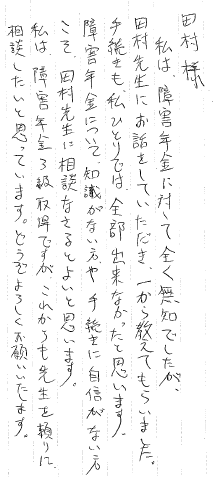 田村様
私は、障害年金に対して全く無知でしたが、
田村先生にお話をしていただき、一から教えてもらいました。
手続きも、私ひとりでは、全部出来なかったと思います。
障害年金について、知識がない方や手続きに自信がない方
こそ、田村先生に相談なさるとよいと思います。
私は、障害年金3級取得ですが、これからも先生を頼りに、
相談したいと思っています。どうぞよろしくお願いいたします。